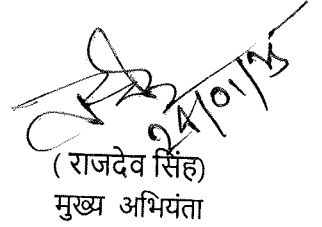 24/01/25
( राजदेव सिंह)
मुख्य अभियंता